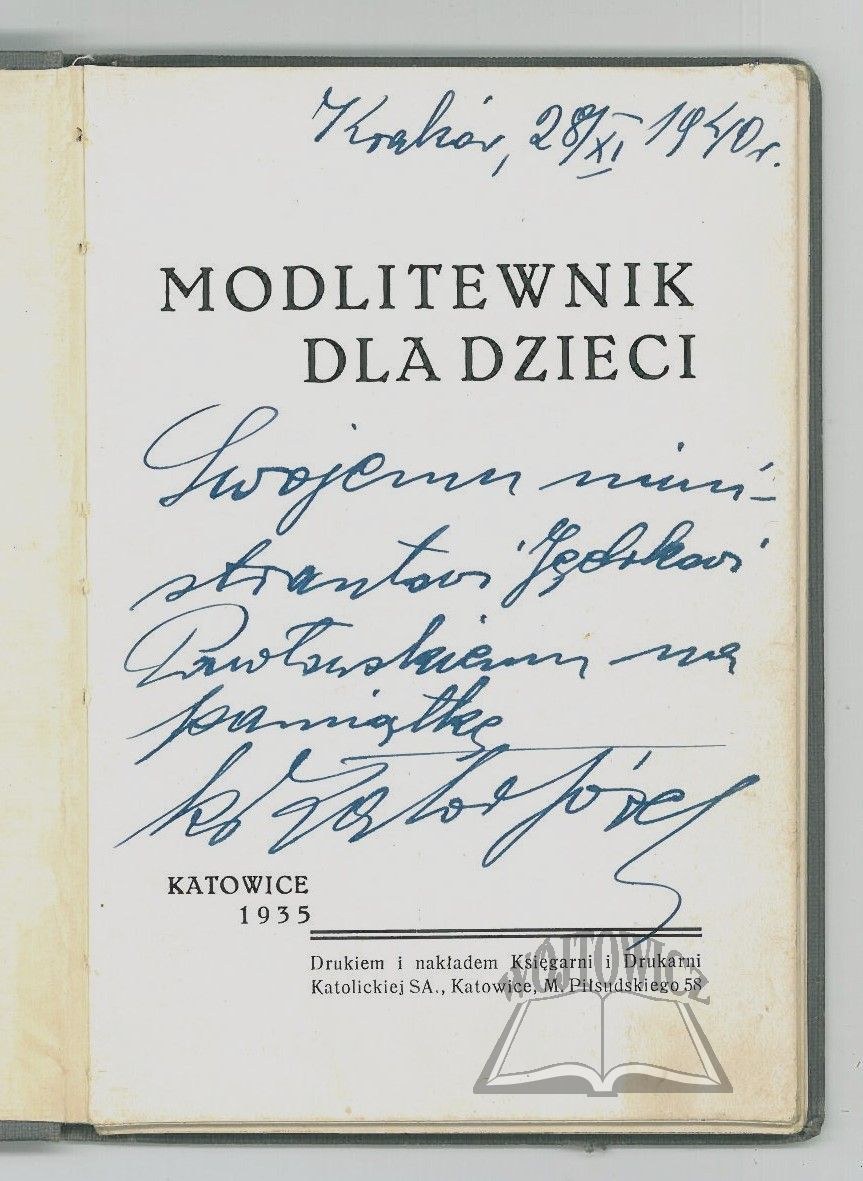 Kraków, 28/XI 1940 r.
MODLITEWNIK
DLA DZIECI
Swojemu mini-
strantowi Jędrkowi
Pawłowskiemu na
pamiątkę
ks Józef
KATOWICE
1935
Drukiem i nakładem Księgarni i Drukarni
Katolickiej SA., Katowice, M. Piłsudskiego 58
WÓJTOWICZ